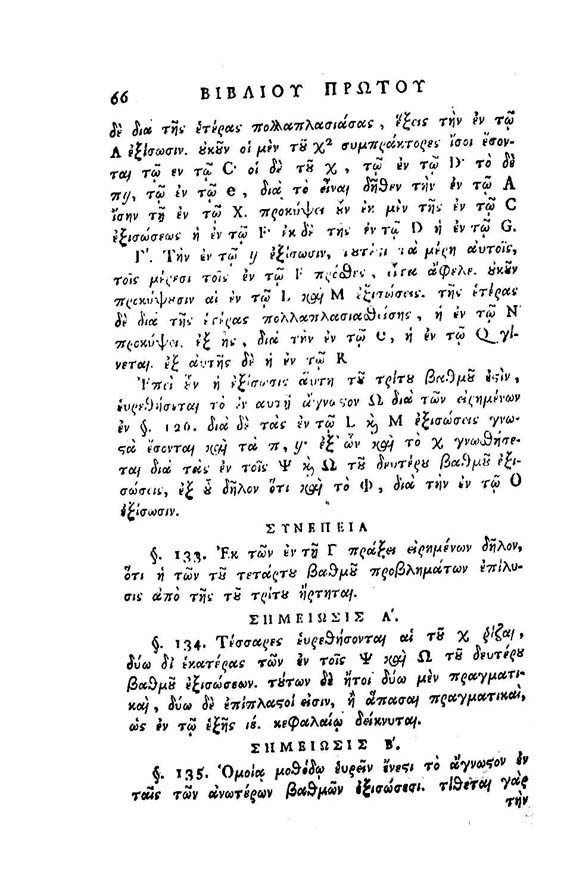 66 ΒΙΒΛΙΟΥ ΠΡΩΤΟΥ
δὲ διὰ τῆς ἑτέρας πολλαπλασιάσας, ἕξεις τὴν ἐν τῷ
A ἐξίσωσιν. ȣ̓κȣ͂ν οἱ μὲν τȣ͂ χ² συμπράκτορες ἴσοι ἔσον-
ται τῷ εν τῷ C· οἱ δὲ τȣ͂ χ, τῷ ἐν τῷ D· τὸ δὲ
πy, τῷ ἐν τῷ e, διὰ τὸ εἶναι δῆθεν τὴν ἐν τῷ A
ἴσην τῇ ἐν τῷ X. προκύψει ȣ̓͂ν ἐκ μὲν τῆς ἐν τῷ C
ἐξισώσεως ἡ ἐν τῷ F· ἐκ δὲ τῆς ἐν τῷ D ἡ ἐν τῷ G.
Γ'. Τὴν ἐν τῷ y ἐξίσωσιν, τȣτέςι τὰ μέρη αὐτοῖς,
τοῖς μέρεσι τοῖς ἐν τῷ F πρόσθες, εἶτα ἄφελε. ȣ̓κȣ͂ν
προκύψȣσιν αἱ ἐν τῷ L καὶ M ἐξισώσεις. τῆς ἑτέρας
δὲ διὰ τῆς ἑτέρας πολλαπλασιασθείσης, ἡ ἐν τῷ N
προκύψει. ἐξ ἧς, διὰ τὴν ἐν τῷ e, ἡ ἐν τῷ Q γί-
νεται. ἐξ αὐτῆς δὲ ἡ ἐν τῷ R
Ἐπεὶ ȣ̓͂ν ἡ ἐξίσωσις αὕτη τȣ͂ τρίτȣ βαθμȣ͂ ἐςὶν,
ἑυρεθήσεται τὸ ἐν αυτῇ ἄγνωςον Ω διὰ τῶν εἰρημένων
ἐν §. 126. διὰ δὲ τὰς ἐν τῷ L κ̀ M ἐξισώσεις γνω-
ςὰ ἔσονται καὶ τὰ π, y· ἐξ ὧν καὶ τὸ χ γνωσθήσε-
ται διὰ τὰς ἐν τοῖς Ψ κ̀ Ω τȣ͂ δευτέρȣ βαθμȣ͂ ἐξι-
σώσεις, ἐξ ȣ̔͂ δῆλον ὅτι καὶ τὸ Φ, διὰ τὴν ἐν τῷ O
ἐξίσωσιν.
ΣΥΝΕΠΕΙΑ
§. 133. Ἐκ τῶν ἐν τῇ Γ πράξει εἰρημένων δῆλον,
ὅτι ἡ τῶν τȣ͂ τετάρτȣ βαθμȣ͂ προβλημάτων ἐπίλυ-
σις ἀπὸ τῆς τȣ͂ τρίτȣ ἤρτηται.
ΣΗΜΕΙΩΣΙΣ Α'.
§. 134. Τέσσαρες ἑυρεθήσονται αἱ τȣ͂ χ ῥίζαι,
δύω δι' ἑκατέρας τῶν ἐν τοῖς Ψ καὶ Ω τȣ͂ δευτέρȣ
βαθμȣ͂ ἐξισώσεων. τȣ́των δὲ ἤτοι δύω μὲν πραγματι-
καὶ, δύω δὲ ἐπίπλαςοί εἰσιν, ἢ ἅπασαι πραγματικαὶ,
ὡς ἐν τῷ ἑξῆς ιέ. κεφαλαίῳ δείκνυται.
ΣΗΜΕΙΩΣΙΣ Β'.
§. 135. Ὁμοίᾳ μοθόδῳ ἑυρεῖν ἔνεςι τὸ ἄγνωςον ἐν
ταῖς τῶν ἀνωτέρων βαθμῶν ἐξισώσεσι. τίθεται γὰρ
τὴν